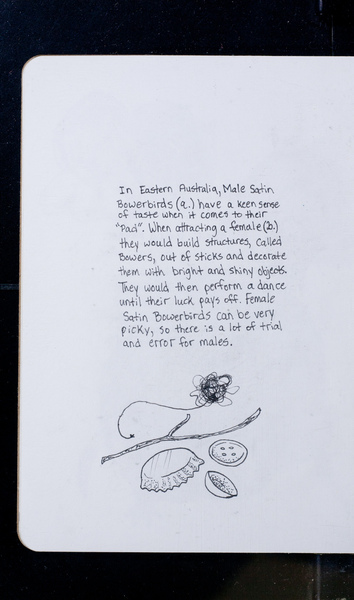 In Eastern Australia, Male Satin
Bowerbirds (a.) have a keen sense
of taste when it comes to their
"Pad". When attracting a female (b.)
they would build structures, called
Bowers, out of sticks and decorate
them with bright and shiny objects.
They would then perform a dance
until their luck pays off. Female
Satin Bowerbirds can be very
picky, so there is a lot of trial
and error for males.